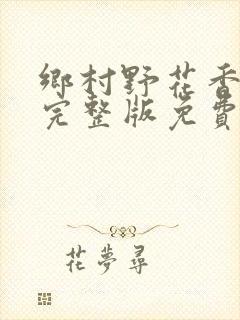 鄉村野花香
完整版免費
花夢尋